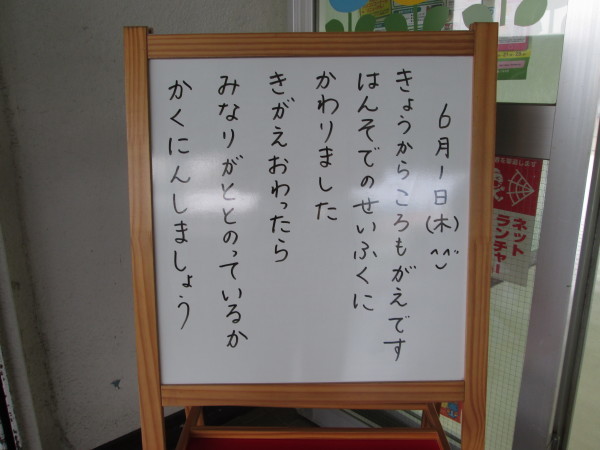 6月1日(木)
きょうからころもがえです
はんそでのせいふくに
かわりました
きがえおわったら
みなりがととのっているか
かくにんしましょう
ネット
ランチャー